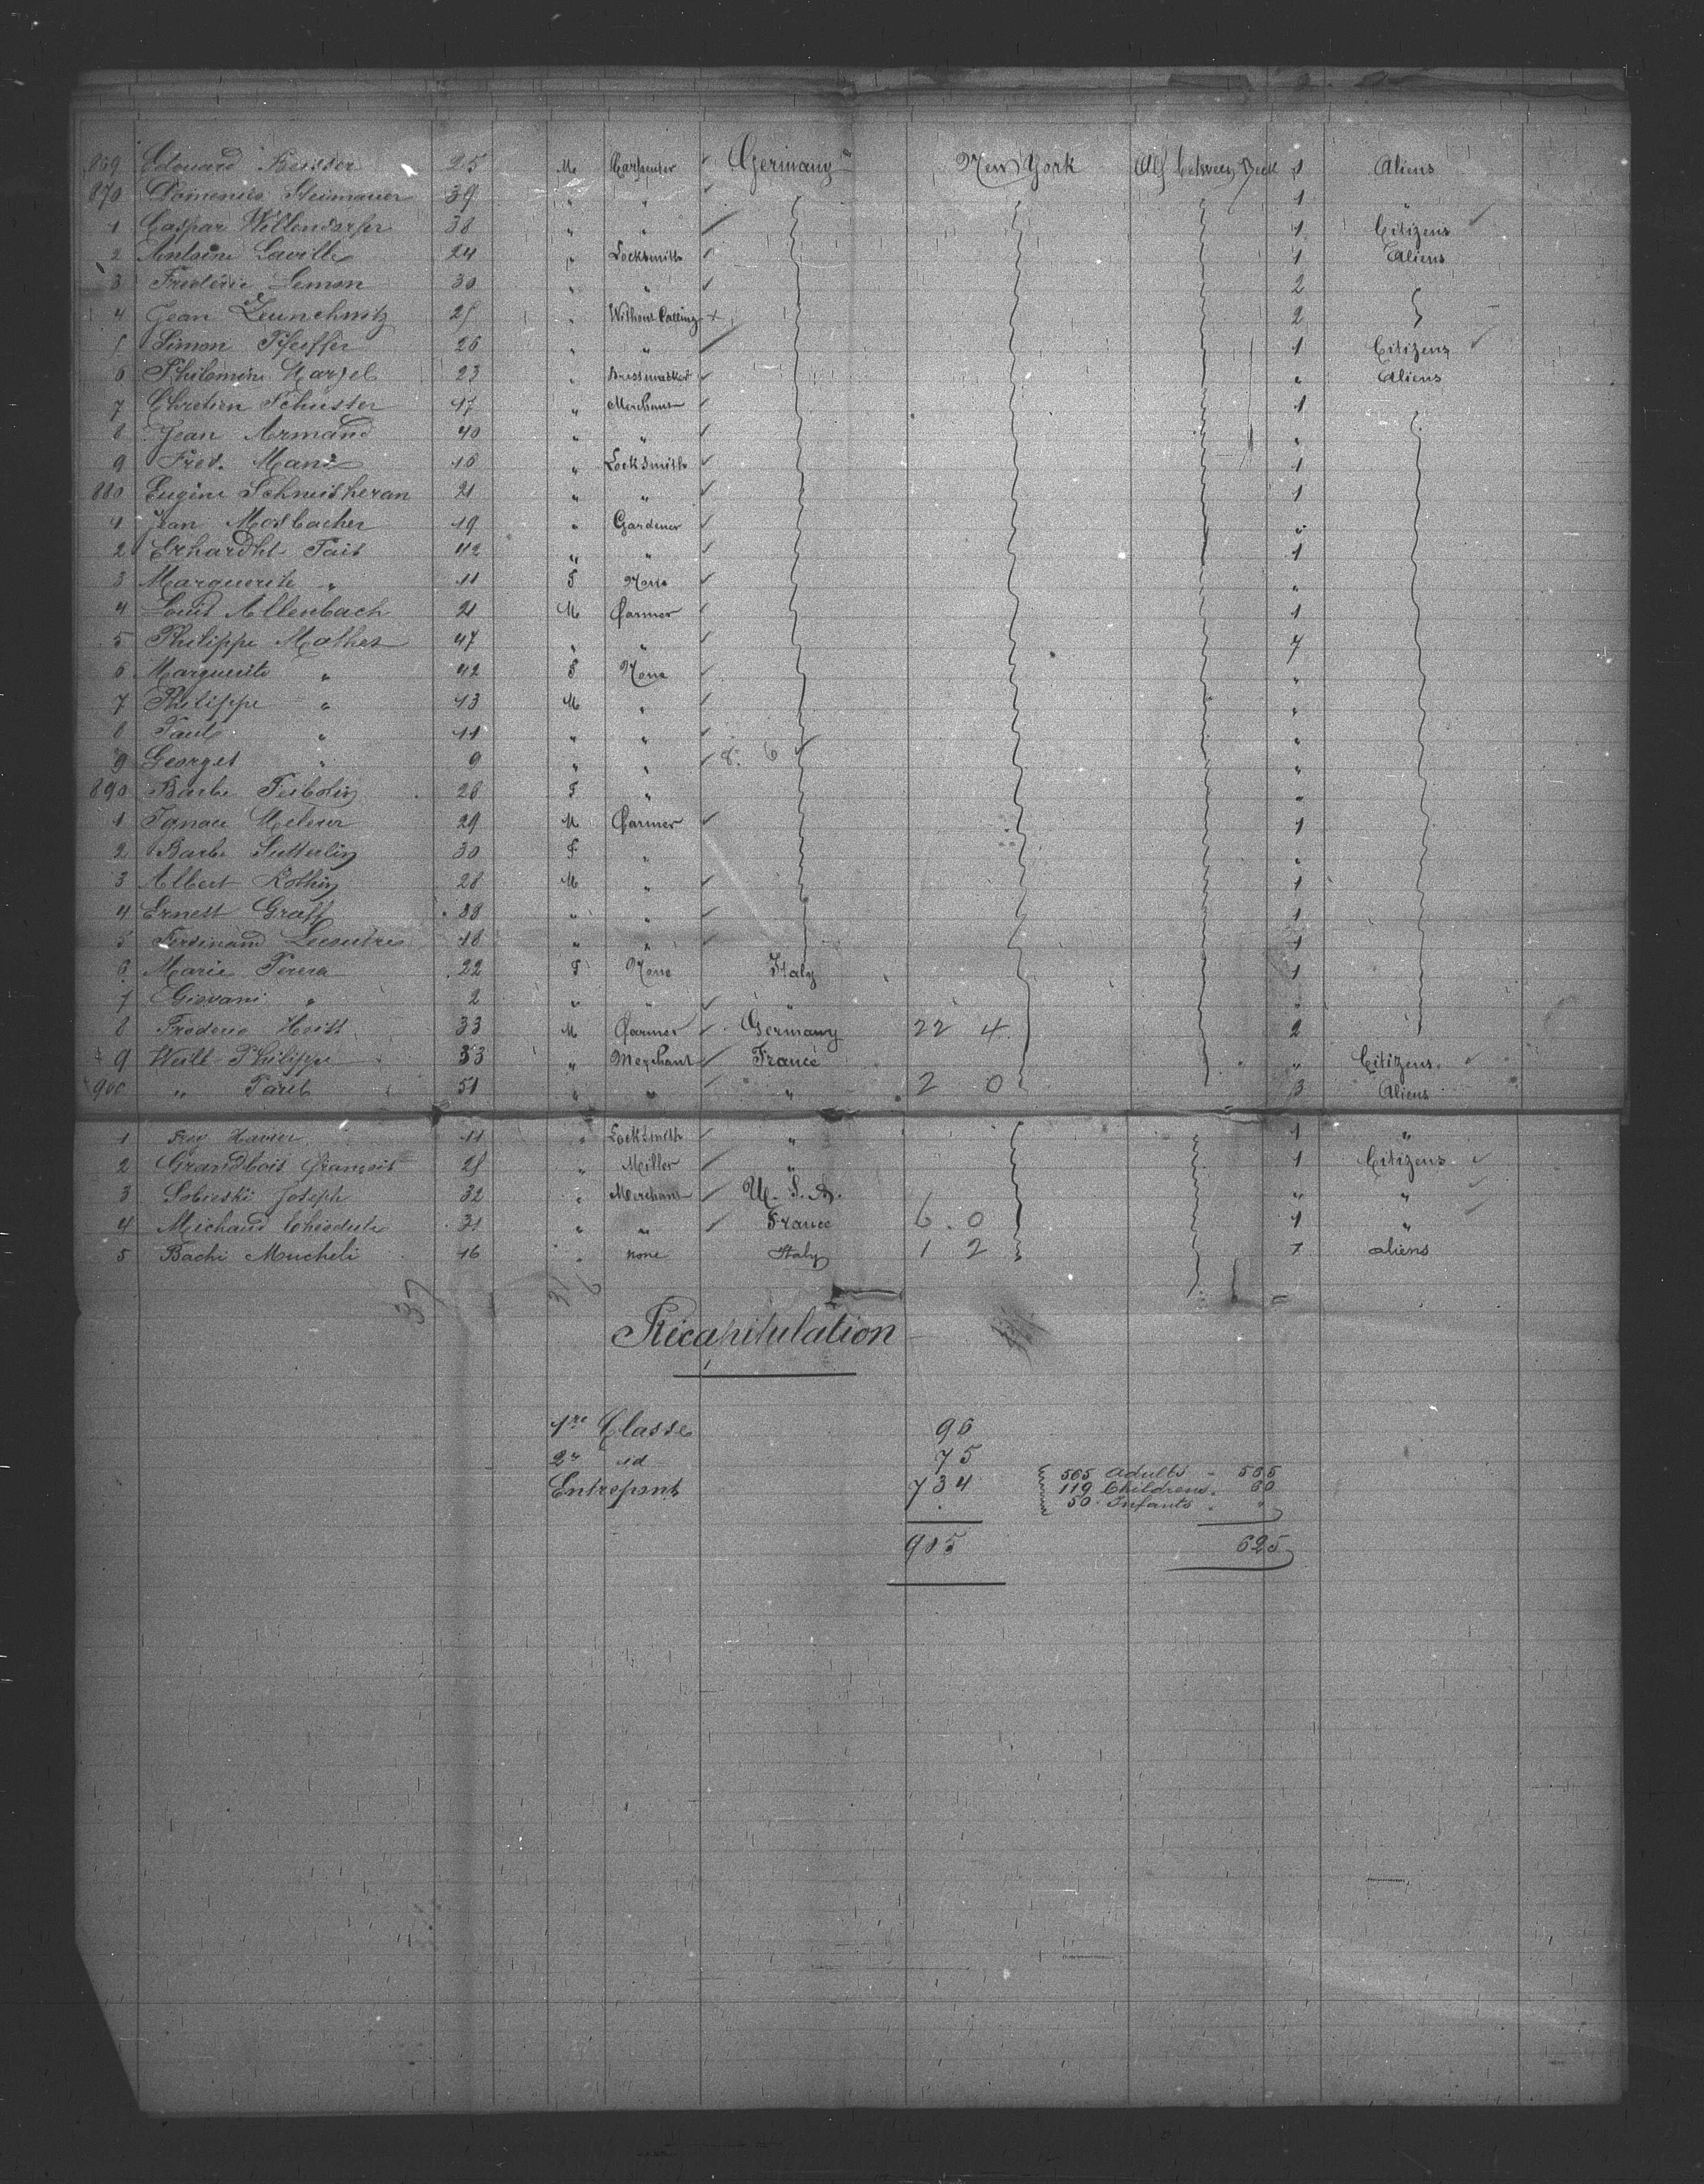 869 Edouard Keisser 25 M Carpenter Germany New York Aff between Deck 1 Aliens
870 Domenico Steimauer 39 " " 1 "
1 Caspar Willendorfer 38 " " 1 Citizens
2 Antoine Laville 24 " Locksmith 1 Aliens
3 Frederic Lemon 30 " " 2
4 Jean 25 " Without Calling 2
5 Simon Pfeiffer 26 " " 1 Citizens
6 Philomène 23 " Dressmaker " Aliens
7 Chretien Schuster 17 " Merchant 1
8 Jean Armand 40 " " "
9 Fred. 18 " Locksmith 1
880 Eugène 21 " " 1
1 Jean Mosbacher 19 " Gardener "
2 Erhardht Fais 42 " " 1
3 Marguerite " 11 F None "
4 Louis Allenbach 21 M Farmer 1
5 Philippe Mathes 47 " " 7
6 Marguerite " 42 F None "
7 Philippe " 13 M " "
8 Paul " 11 " " "
9 Georges " 9 " " 8. 6 "
890 Barbe 28 F " "
1 Ignace 29 M Farmer 1
2 Barbe Sutterlin 30 F " "
3 Albert Kothin 28 M " 1
4 Ernest Graff 38 " " 1
5 Ferdinand Lecoutre 18 " " 1
6 Marie Perera 22 F None Italy 1
7 Giovani " 2 " " " "
8 Frederic 33 M Farmer Germany 22 4 2
9 Weill Philippe 53 " Merchant France " Citizens
900 " Paul 51 " " " 2 0 3 Aliens
1 11 " Locksmith " 1 "
2 Grandbois François 25 " Miller " 1 Citizens
3 Sobieski Joseph 32 " Merchant U. S. A. " "
4 Michaud 31 " " France 6 . 0 1 "
5 Bachi Mucheli 16 " none Italy 1 2 1 aliens
37 31 6
Recapitulation
1re Classe 96
2e id 75
Entrepont 734 565 Adults - 565
119 Children . 60
50 Infants . "
905 625